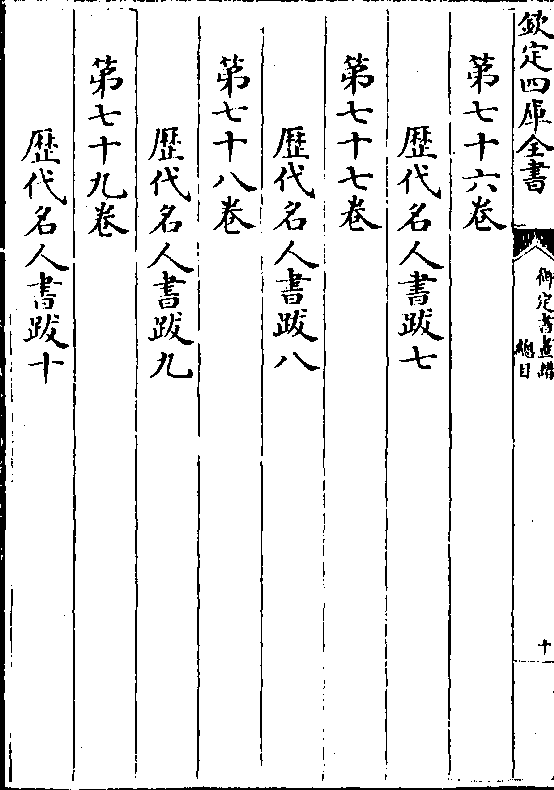 欽定四庫全書
御定書畫譜
總目
十
第七十六卷
歴代名人書跋七
第七十七卷
歴代名人書跋八
第七十八卷
歴代名人書跋九
第七十九卷
歴代名人書跋十